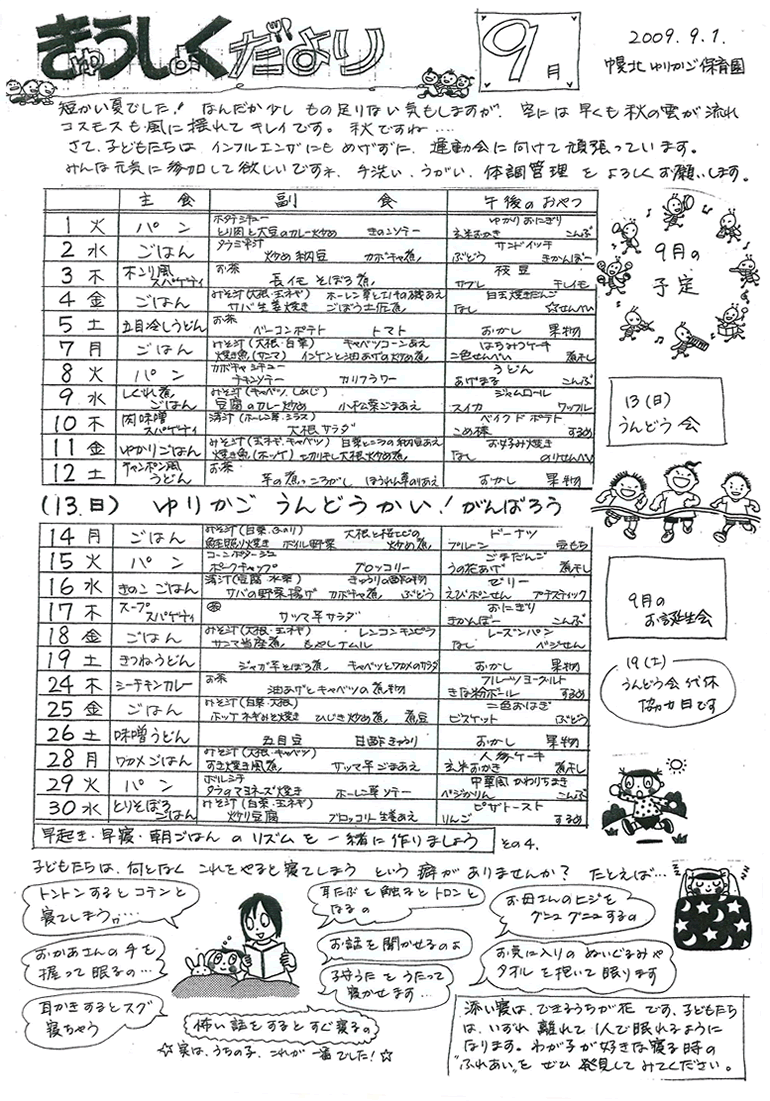 きゅうしょくだより
9月
2009.9.1.
幌北ゆりかご保育園
短かい夏でした! なんだか少し もの足りない気もしますが、空には早くも秋の雲が流れ
コスモスも風に揺れてキレイです。秋ですね‥‥
さて、子どもたちは インフルエンザにもめげずに、運動会に向けて頑張っています。
みんな元気に参加して欲しいですネ、手洗い、うがい、体調管理をよろしくお願いします。
主食 副食 午後のおやつ
1 火 パン ホタテシチュー とり肉と大豆のカレー炒め きのこソテー ゆかりおにぎり 玄米おかき こんぶ
2 水 ごはん 炒め納豆 カボチャ煮 サンドイッチ ぶどう きかんぼー
3 木 ボンゴレ風スパゲティ お茶 長イモそぼろ煮 枝豆 サブレ 干しイモ
4 金 ごはん みそ汁(大根・玉ネギ) サバ生姜焼き ごぼう土佐煮 白玉焼きだんご なし ☆せんべい
5 土 五目冷しうどん お茶 ベーコンポテト トマト おかし 果物
7 月 ごはん みそ汁(大根・白菜) キャベツコーンあえ 焼き魚(サンマ) インゲンと油あげの炒め煮 はちみつケーキ 二色せんべい 煮干し
8 火 パン カボチャシチュー チキンソテー カリフラワー うどん あげまる こんぶ
9 水 しぐれ煮ごはん みそ汁(キャベツ、しめじ) 豆腐のカレー炒め 小松菜ごまあえ ジャムロール スイカ ワッフル
10 木 肉味噌スパゲティ 清汁(ホーレン草・シラス) 大根サラダ ベイクドポテト こめ棒 するめ
11 金 ゆかりごはん みそ汁(玉ネギ、キャベツ) 白菜とニラの納豆あえ 焼き魚(ホッケ) 切り干し大根炒め煮 お好み焼き なし のりせんべい
12 土 チャンポン風うどん お茶 芋の煮っころがし ほうれん草のりあえ おかし 果物
(13.日) ゆりかご うんどうかい! がんばろう
14 月 ごはん みそ汁(白菜・ふのり) 鮭照り焼き ボイル野菜 炒め煮 ドーナツ プルーン 豆もち
15 火 パン コーンポタージュ ポークチャップ ブロッコリー ごまだんご うの花あげ 煮干し
16 水 きのこごはん 清汁(豆腐・水菜) きゅうりの酢の物 サバの野菜揚げ カボチャ煮 ぶどう ゼリー えびポンせん プチスティック
17 木 スープスパゲティ お茶 サツマ芋サラダ おにぎり きかんぼー こんぶ
18 金 ごはん みそ汁(大根・玉ネギ) レンコンキンピラ サンマ当座煮 もやしナムル レーズンパン なし ベジせん
19 土 きつねうどん ジャガ芋そぼろ煮 キャベツとワカメのサラダ おかし 果物
24 木 シーチキンカレー お茶 油あげとキャベツの煮物 フルーツヨーグルト きな粉ボール するめ
25 金 ごはん みそ汁(白菜・大根) ホッケネギみそ焼き ひじき炒め煮 煮豆 二色おはぎ ビスケット ぶどう
26 土 味噌うどん 五目豆 甘酢きゅうり おかし 果物
28 月 ワカメごはん みそ汁(大根・キャベツ) すき焼き風煮 サツマ芋ごまあえ 人参ケーキ 玄米おかき 煮干し
29 火 パン ボルシチ タラのマヨネーズ焼き ホーレン草ソテー 中華風かわりちまき ベジかりん こんぶ
30 水 とりそぼろごはん みそ汁(白菜・玉ネギ) 炒り豆腐 ブロッコリー生姜あえ ピザトースト りんご するめ
9月の
予定
13(日)
うんどう会
9月の
お誕生会
19(土)
うんどう会代休
協力日です
早起き・早寝・朝ごはん のリズムを一緒に作りましょう その4.
子どもたちは、何となくこれをやると寝てしまう という癖がありませんか? たとえば‥‥
トントンするとコテンと
寝てしまうョ‥‥
耳たぶを触るとトロンと
なるの
お母さんのヒジを
グニュグニュするの
おかあさんの手を
握って眠るの‥‥
お話を聞かせるのよ
お気に入りのぬいぐるみや
タオルを抱いて眠ります
子守うたをうたって
寝かせます‥‥
耳かきするとスグ
寝ちゃう
怖い話をするとすぐ寝るの
☆実は、うちの子、これが一番でした!☆
添い寝は、できるうちが花です。子どもたち
は、いずれ離れて1人で眠れるように
なります。わが子が好きな寝る時の
“ふれあい”をぜひ発見してみてください。